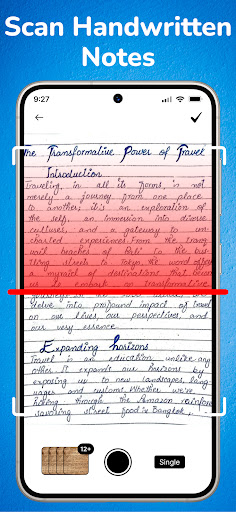 Scan Handwritten
Notes
9:27
The Transformative Power of Travel
Introduction
Traveling, in all its forms, is not
merely a journey from one place
to another; it's an exploration of
the self, an immersion into diverse
cultures, and a gateway to un-
charted experiences. From the tranq
uil beaches of Bali to the bus
tling streets of Tokyo, the world offers
a myriad of destinations that
us to embark on transformative
delve into profound impact of travel
on our lives, our perspectives, and
our very essence.
Expanding horizons
Travel is an education unlike any
other. It expands our horizons by
exposing us to new landscapes, lang
uages and customs. Whether we're
through the Amazon rainfore
savoring street food in Bangkok,
12+
Single